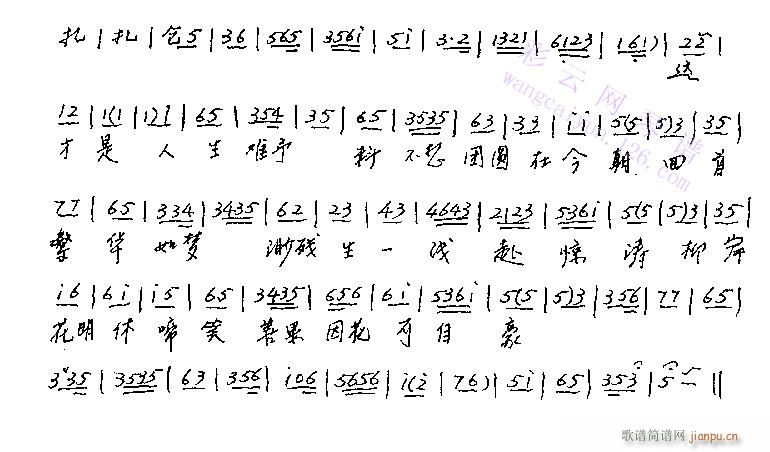 扎 | 扎 | 仓5 | 36 | 565 | 356i | 5i | 3·2 | 1321 | 6123 | 161) | 22 |
这
12 | 1(1 | 1)1 | 65 | 354 | 35 | 65 | 3535 | 63 | 33 | ii | 5(5 | 5)3 | 35 |
才是 人生难予 料不想团圆在今朝回首
77 | 65 | 334 | 3435 | 62 | 23 | 43 | 4643 | 2123 | 536i | 5(5 | 5)3 | 35 |
繁华如梦 渺残生一线赴惊涛柳岸
i6 | 6i | i5 | 65 | 3435 | 656 | 6i | 536i | 5(5 | 5)3 | 356 | 77 | 65 |
花明休啼笑善果因花可自豪
335 | 3535 | 63 | 356 | i06 | 5656 | i(2 | 76) | 5i | 65 | 353 | 5 ||
彩云网
wangcaiyun.126.com
歌谱简谱网 jianpu.cn